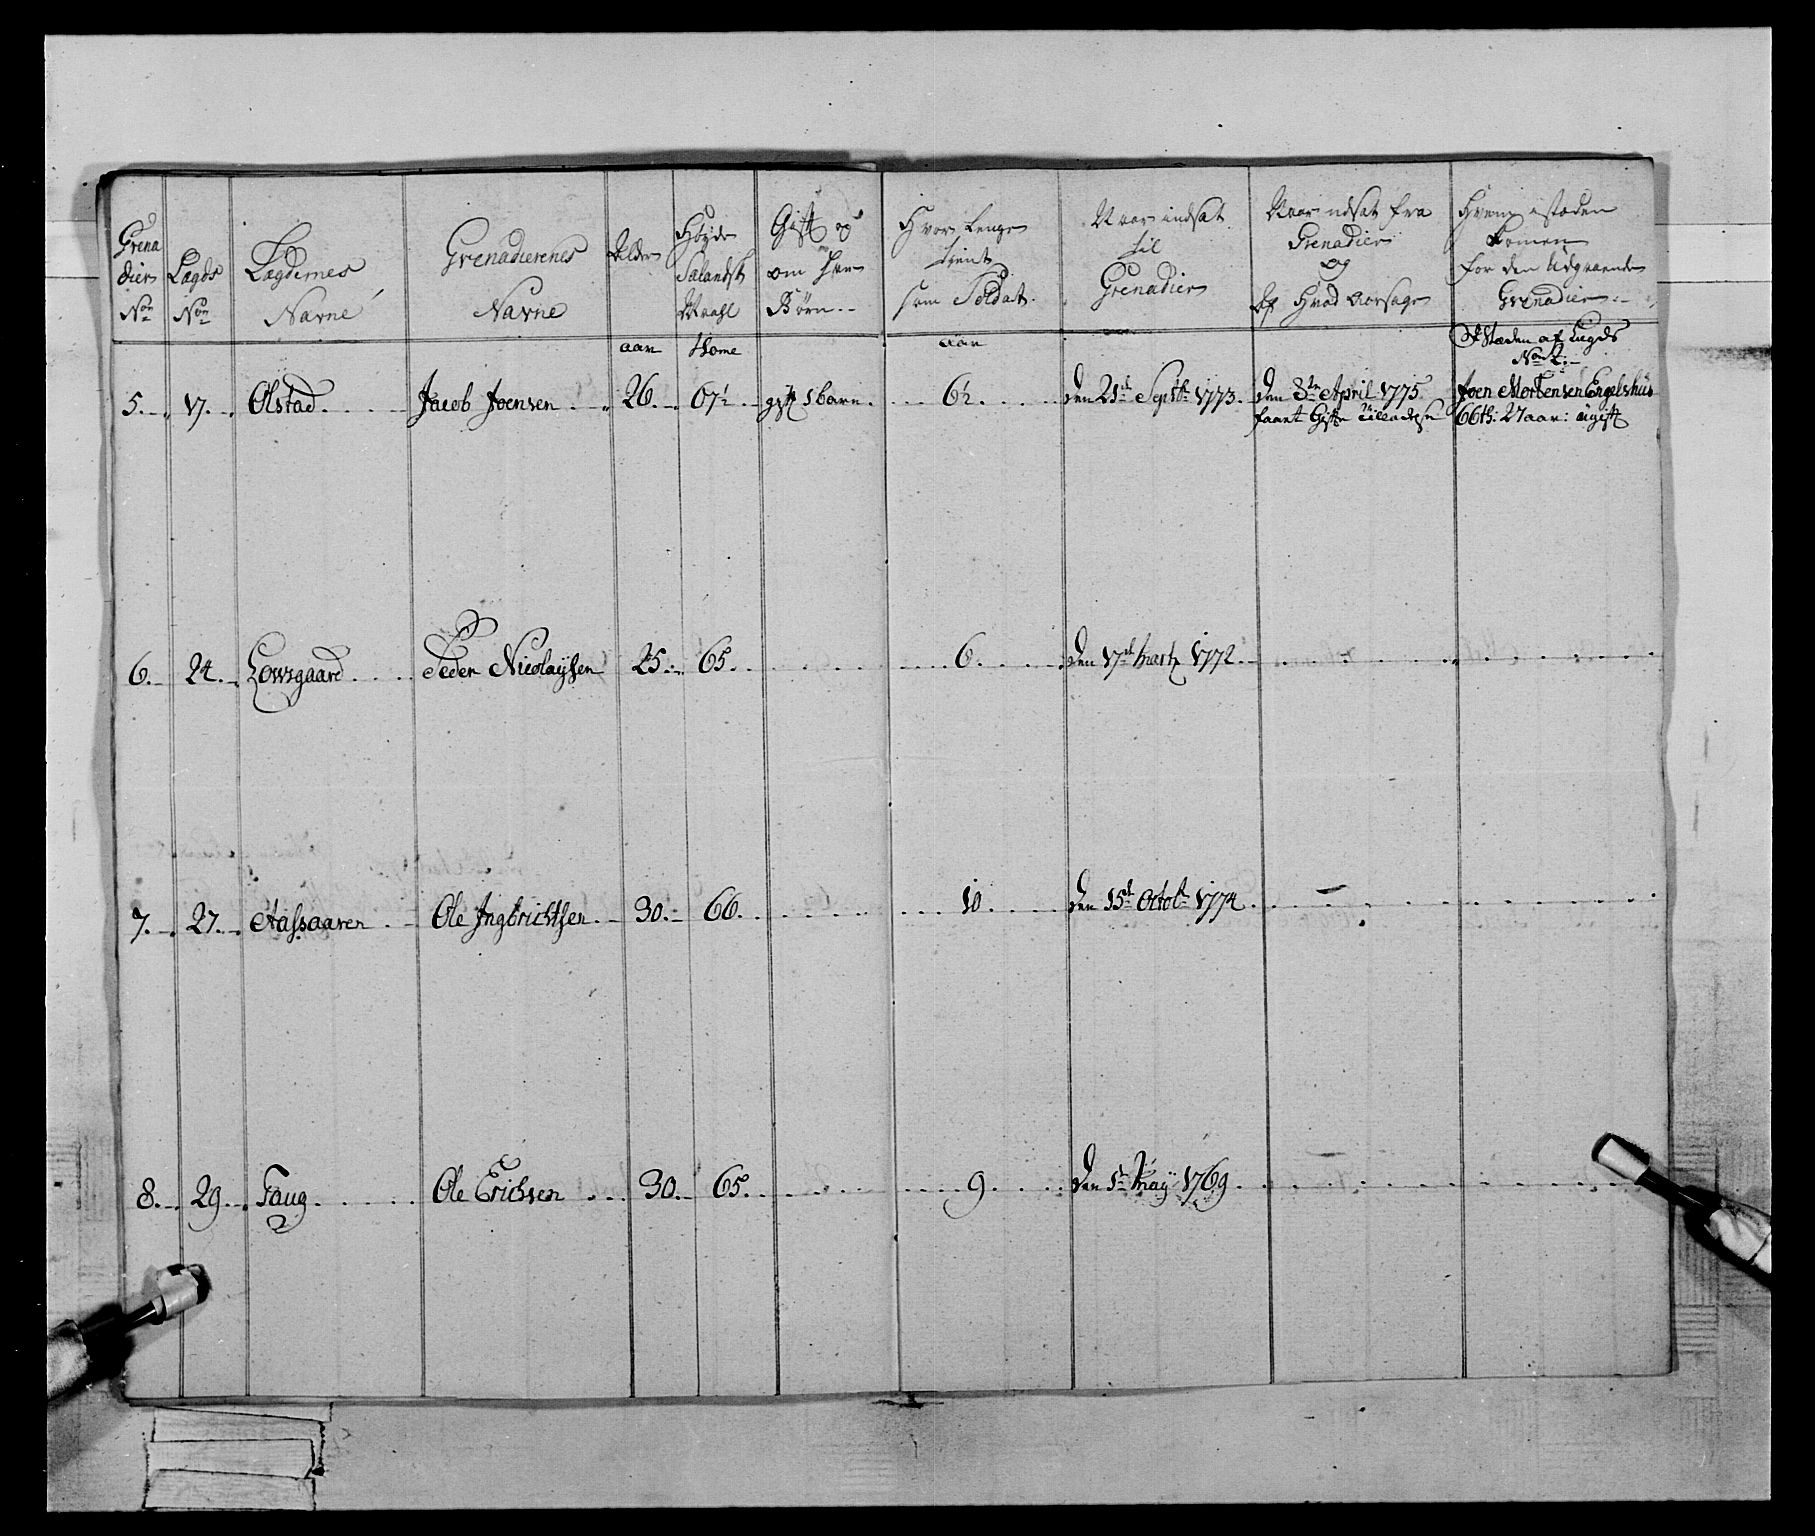 Grena
dier
No
Lægds
No
Lægdernes
Navne
Grenadierenes
Navne
Alder
Høyde
Salandsk
Maahl
Gift og
om har
Børn
Hvor Lenge
tient
som Soldat
Naar indsat
til
Grenadier
Naar udsat fra
Grenadier
og
af Hvad Aarsage
Hvem i stæden
komen
for den Udgaaende
Grenadier
aar tome aar
I Stæden af Lægds
No
5. 17. Olstad Jacob Joensen 26. 67½ gift 1 barn. 6½. den 21de Septbr 1773. den 8de April 1775 Joen Mortensen Engelshus
faaet Gifte 66th: 27aar: ugift
6. 24. Lowsgaard Peder Nicolaysen 25. 65. 6. den 17de Martz 1772.
7. 27. Aassaaren Ole Ingbrichtsen 30. 66. 10. den 15de Octobr 1774.
8. 29. Faug Ole Erichsen 30. 65. 9. den 1te May 1769.